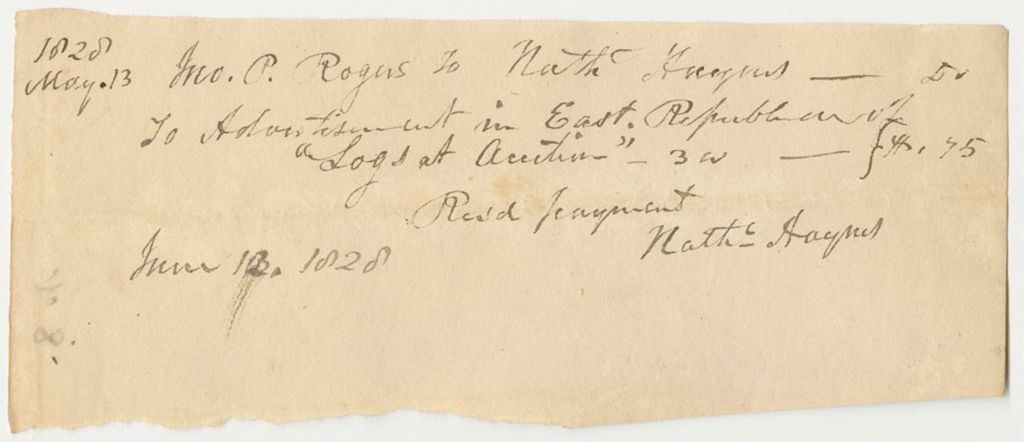 1828
May. 13 Jno. P. Rogers To Nathl Haynes — Dr
To Advertisement in East. Republican of
"Logs at Auction" — 3 w — } $. 75
Rec'd payment
Nathl Haynes
June 13. 1828